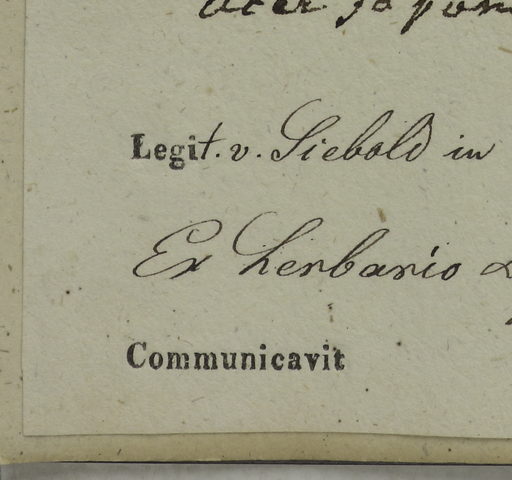 Acer japon
Legit. v. Siebold in
Ex herbario
Communicavit